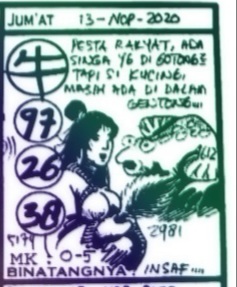 JUM'AT 13-NOP-2020
牛
PESTA RAKYAT, ADA
SINGA YG DI GOTONG²
TAPI SI KUCING,
MASIH ADA DI DALAM
GENTONG...
97
26
38
9612
5179
2981
MK : 0-5
BINATANGNYA : INSAF....